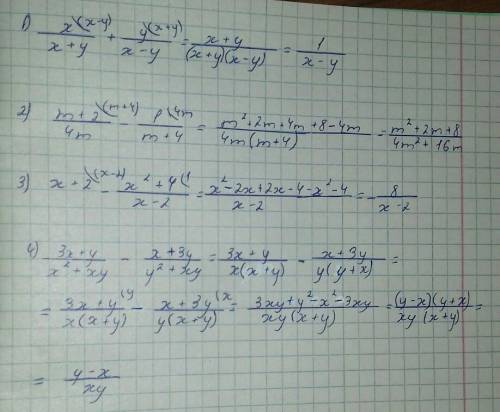 1) x\(x-y) / x+y + y\(x+y) / x-y = x+y / (x+y)(x-y) = 1 / x-y
2) m+2\(m+4) / 4m - \4m / m+4 = m²+2m+4m+8-4m / 4m(m+4) = m²+2m+8 / 4m²+16m
3) x+2\(x-2) - x²+4(1 / x-2 = x²-2x+2x-4-x²-4 / x-2 = - 8 / x-2
4) 3x+y / x²+xy - x+3y / y²+xy = 3x+y / x(x+y) - x+3y / y(y+x) =
= 3x+y(y / x(x+y) - x+3y(x / y(x+y) = 3xy+y²-x²-3xy / xy(x+y) = (y-x)(y+x) / xy(x+y) =
= y-x / xy